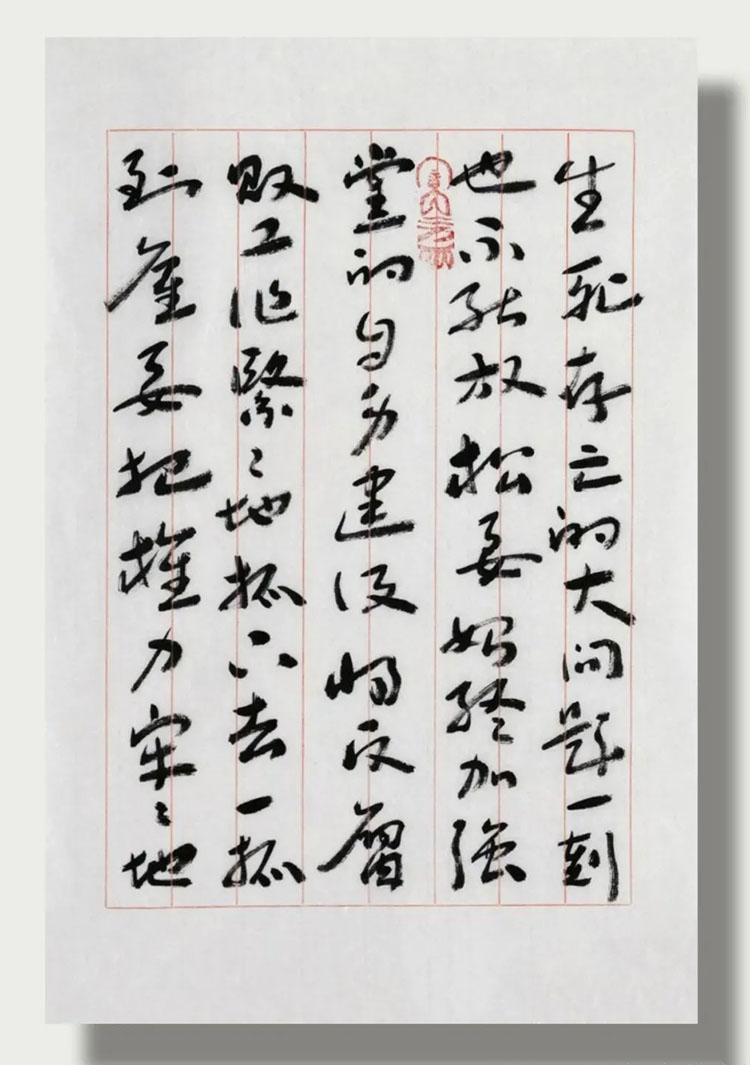 生死存亡的大问题一刻
也不能放松要始终加强
党的自身建设将反腐
败工作緊々地抓下去一抓
到底要把權力牢々地